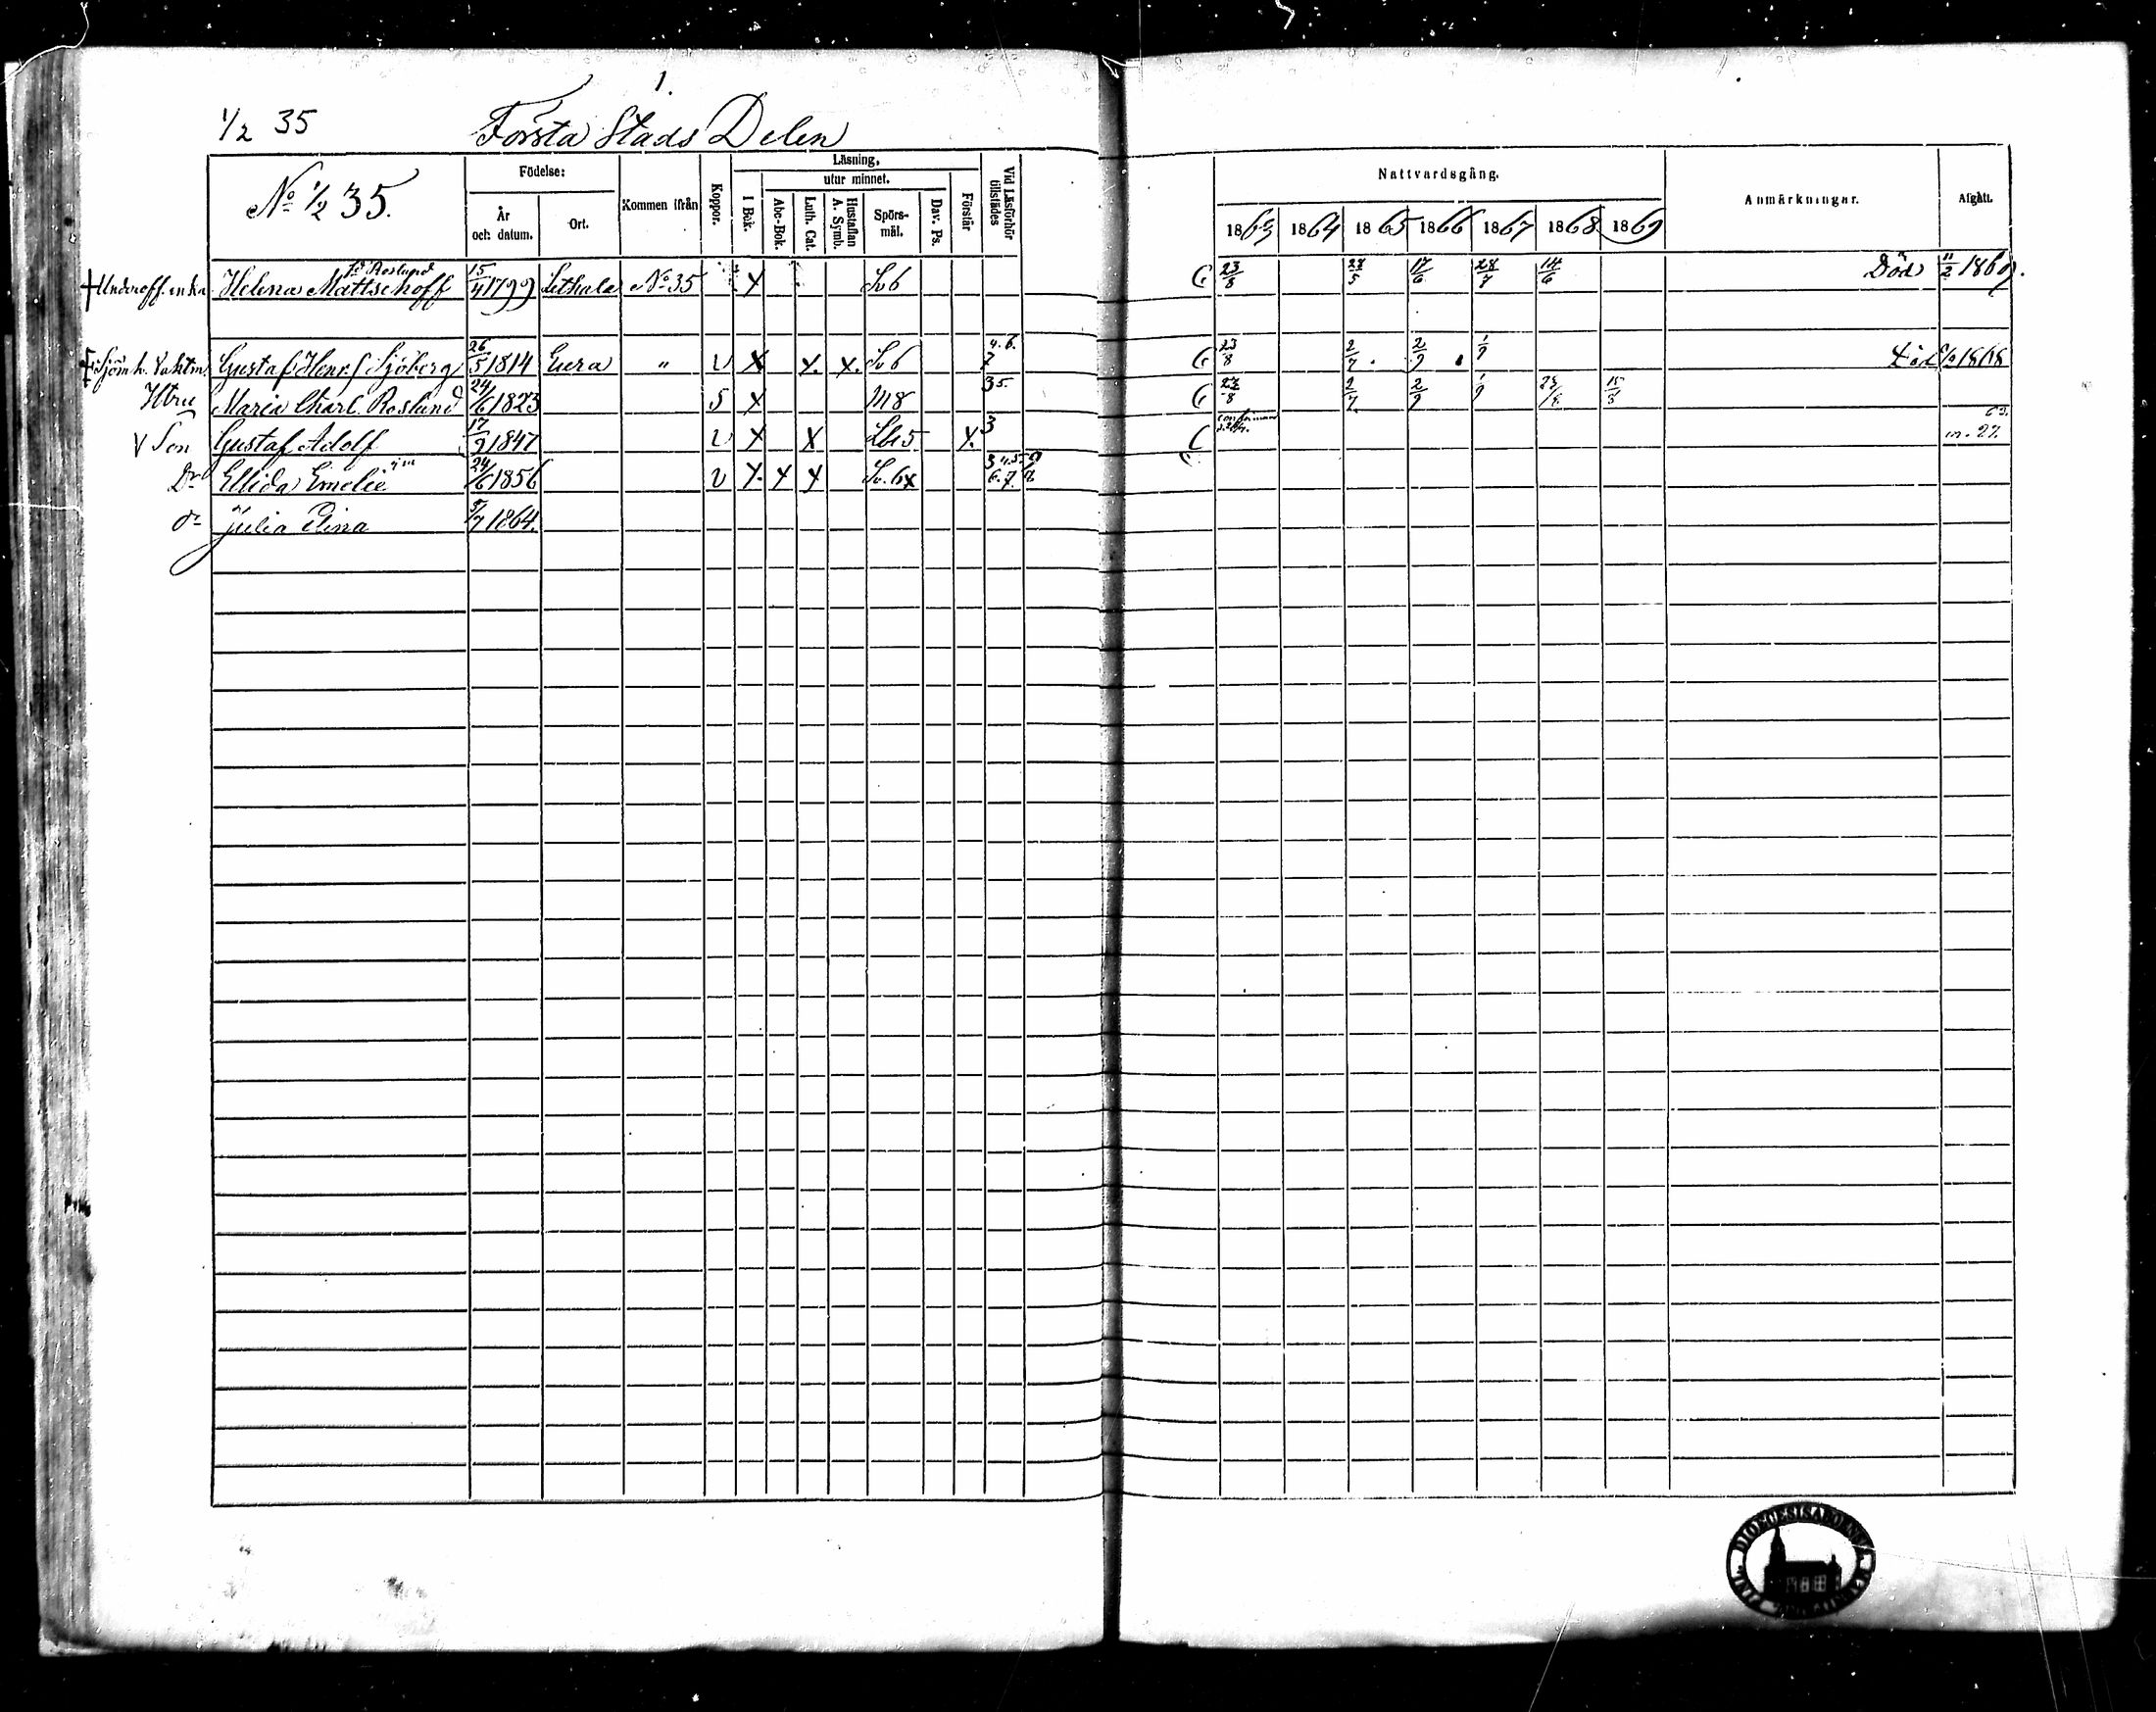 1.
1/2 35 Första Stads Delen
No 1/2 35.
Födelse:
År och datum.
Ort.
Kommen ifrån
Koppor.
Läsning,
I Bok.
utur minnet.
Abc-Bok.
Luth. Cat.
Hustaflan A. Symb.
Spörs-mål.
Dav. Ps.
Förstår
Vid Läsförhör tillstädes
Nattvardsgång.
1863 1864 1865 1866 1867 1868 1869
Anmärkningar.
Afgått.
fd Roslund
† Underoff. enka Helena Mattschoff 15/4 1799 Lethala No 35 X Sv 6 C 23/8 28/5 17/6 28/7 14/6 Död 11/2 1869.
4. 6. 7
† Sjöm. h. Vaktm. Gustaf Henr. Sjöberg 26/5 1814 Eura " v X X. X. Sv 6 C 23/8 2/7 2/9 1/9 Död 1868
Htru Maria Charl. Roslund 24/6 1823 S X M 8 35 C 23/8 2/7 2/9 1/9 15/8
V Son Gustaf Adolf 17/9 1847 v X X 5 X. 3 C m. 27.
Dr Ellida Emelie 24/6 1856 v X. X X Sv. 6x 6. 7.
dr Julia Elina 5/7 1864.